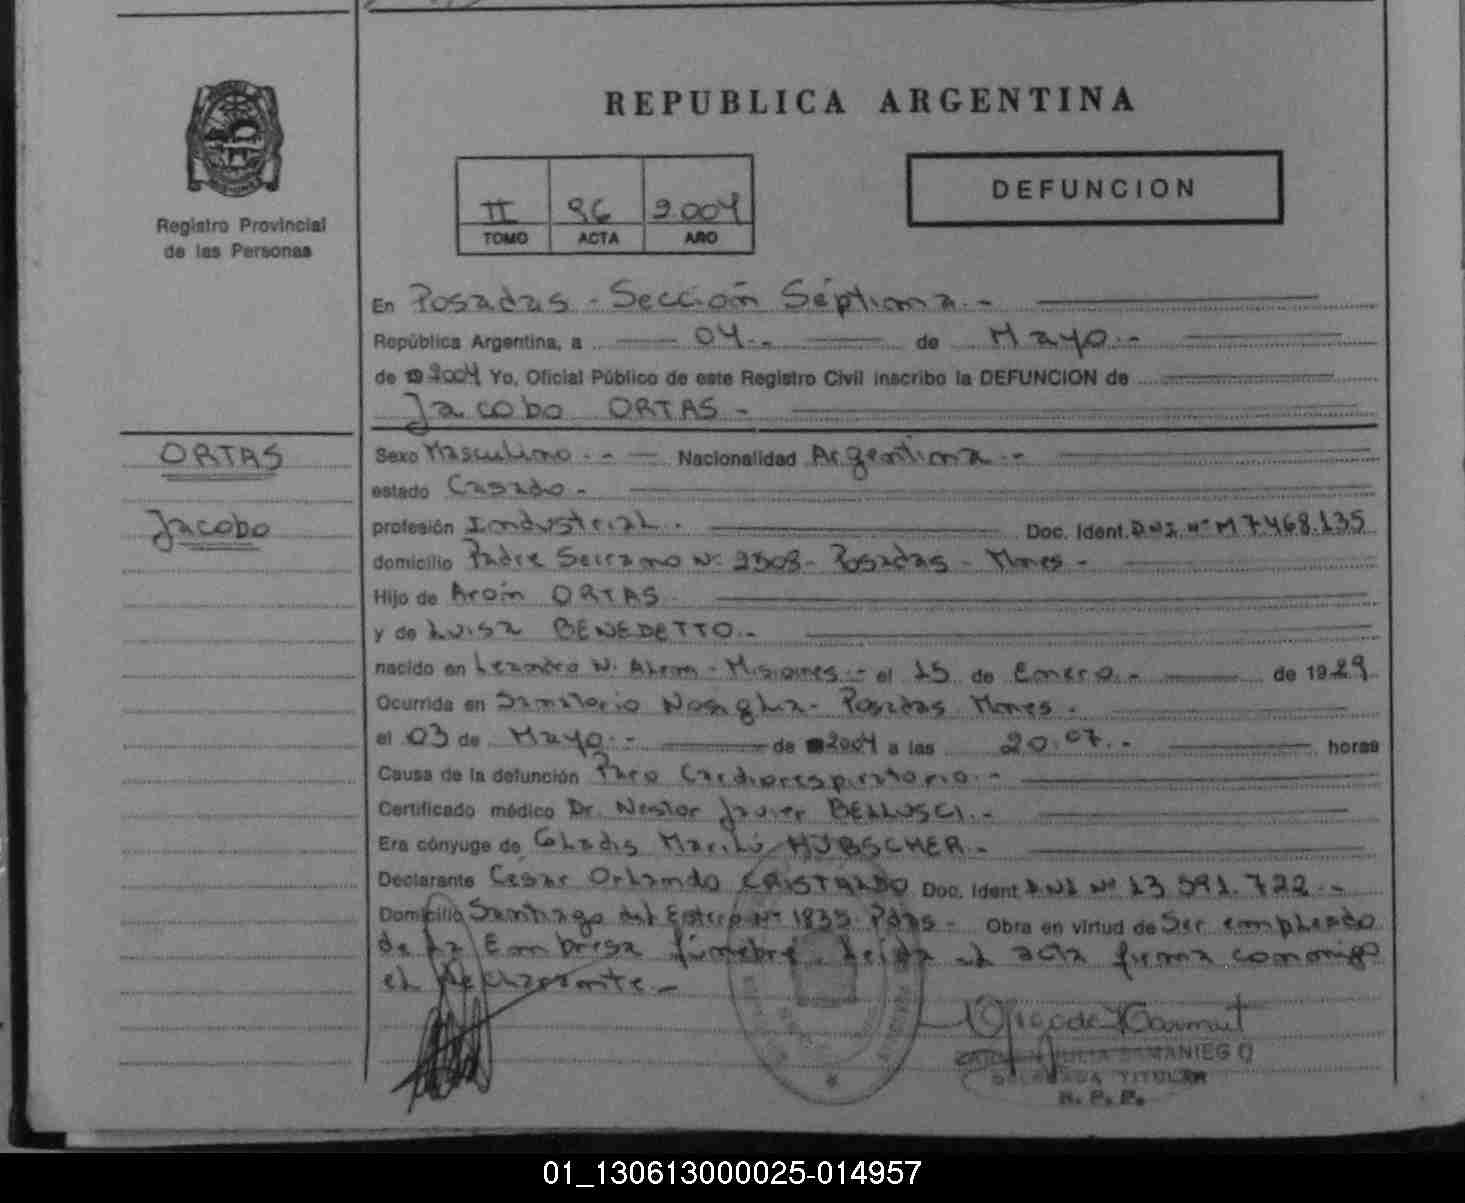 REPUBLICA ARGENTINA
DEFUNCION
II 96 2.004
TOMO ACTA AÑO
Registro Provincial
de las Personas
En Posadas - Sección Séptima.-
República Argentina, a 04.- de Mayo.-
de 2004 Yo, Oficial Público de este Registro Civil inscribo la DEFUNCION de
Jacobo ORTAS -
ORTAS
Jacobo
Sexo Masculino.- Nacionalidad Argentina.-
estado Casado.-
profesión Industrial. Doc. Ident. D.N.I. Nº M 7.468.135
domicilio Padre Serrano Nº 2308 - Posadas - Mnes -
Hijo de Aroín ORTAS
y de Luisa BENEDETTO.-
nacido en Leandro N. Alem - Misiones.- el 15 de Enero.- de 1929
Ocurrida en Sanatorio Nosiglia - Posadas Mnes.
el 03 de Mayo.- de 2004 a las 20.07.- horas
Causa de la defunción Paro Cardiorespiratorio.-
Certificado médico Dr. Nestor Javier BELLUSCI.-
Era cónyuge de Gladis Marilú HÜBSCHER.-
Declarante César Orlando CRISTALDO Doc. Ident D.N.I Nº 13.591.722.-
Domicilio Santiago del Estero Nº 1835 Pdas - Obra en virtud de Ser empleado
de la Embresa fúnebre. Leída el acta firma conmigo
el Declarante.-
JULIA SAMANIEGO
DELEGADA TITULAR
R. P. P.
01_130613000025-014957